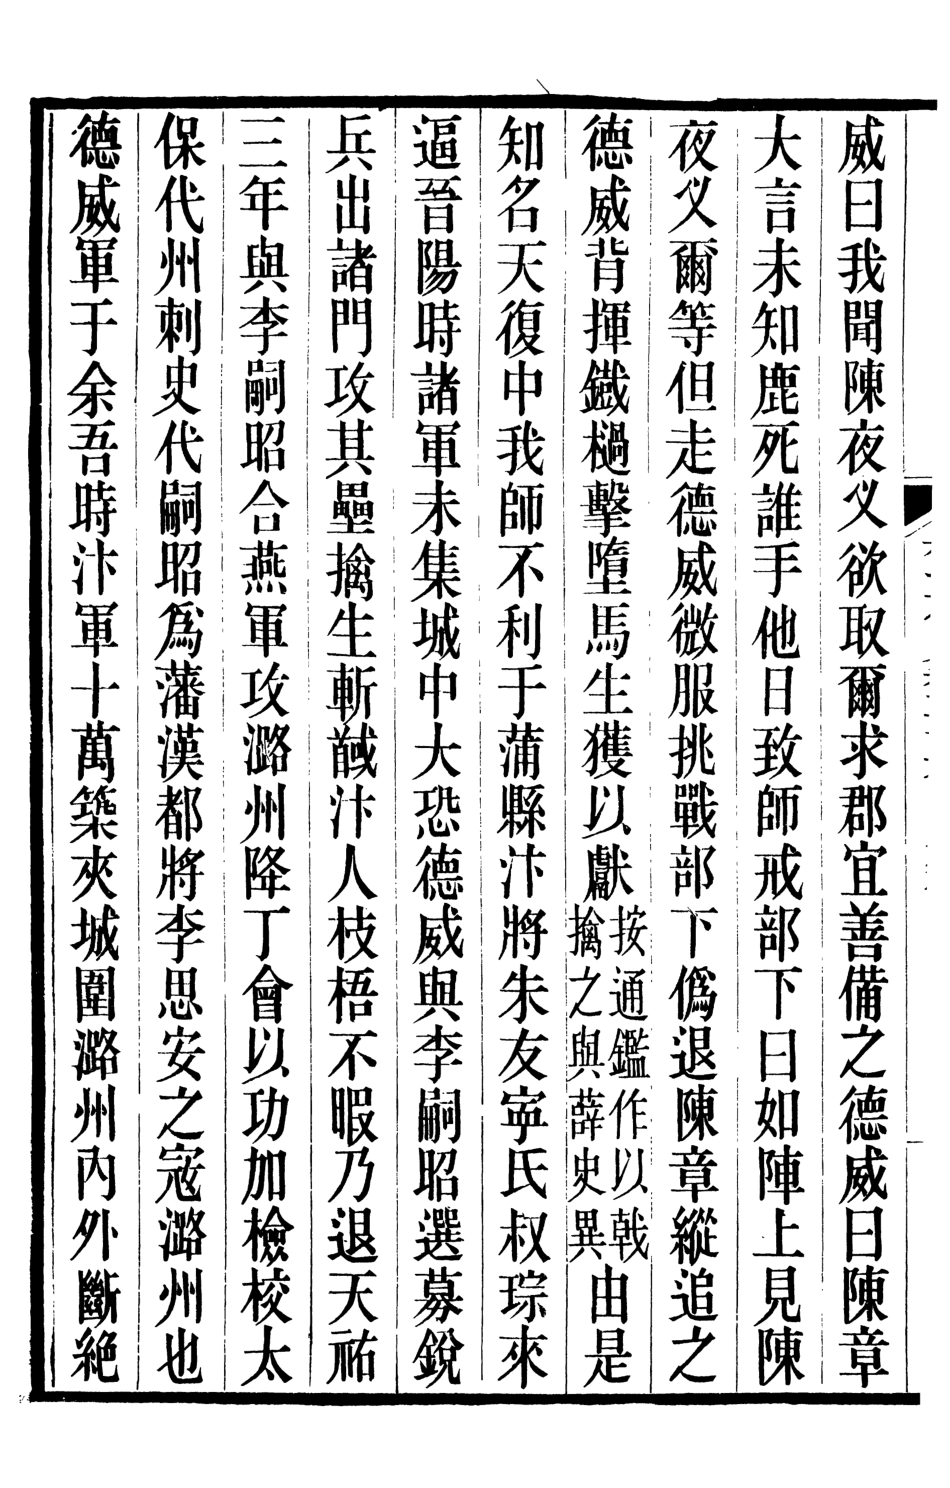 威曰我聞陳夜义欲取爾求郡宜善備之德威曰陳章
大言未知鹿死誰手他日致師戒部下曰如陣上見陳
夜义爾等但走德威微服挑戰部下僞退陳章縱追之
德威背揮鐵檛擊墮馬生獲以獻按通鑑作以戟擒之與薛史異由是
知名天復中我師不利于蒲縣汴將朱友寧氏叔琮來
逼晉陽時諸軍未集城中大恐德威與李嗣昭選募銳
兵出諸門攻其壘擒生斬馘汴人枝梧不暇乃退天祐
三年與李嗣昭合燕軍攻潞州降丁會以功加檢校太
保代州刺史代嗣昭爲蕃漢都將李思安之寇潞州也
德威軍于余吾時汴軍十萬築夾城圍潞州內外斷絕